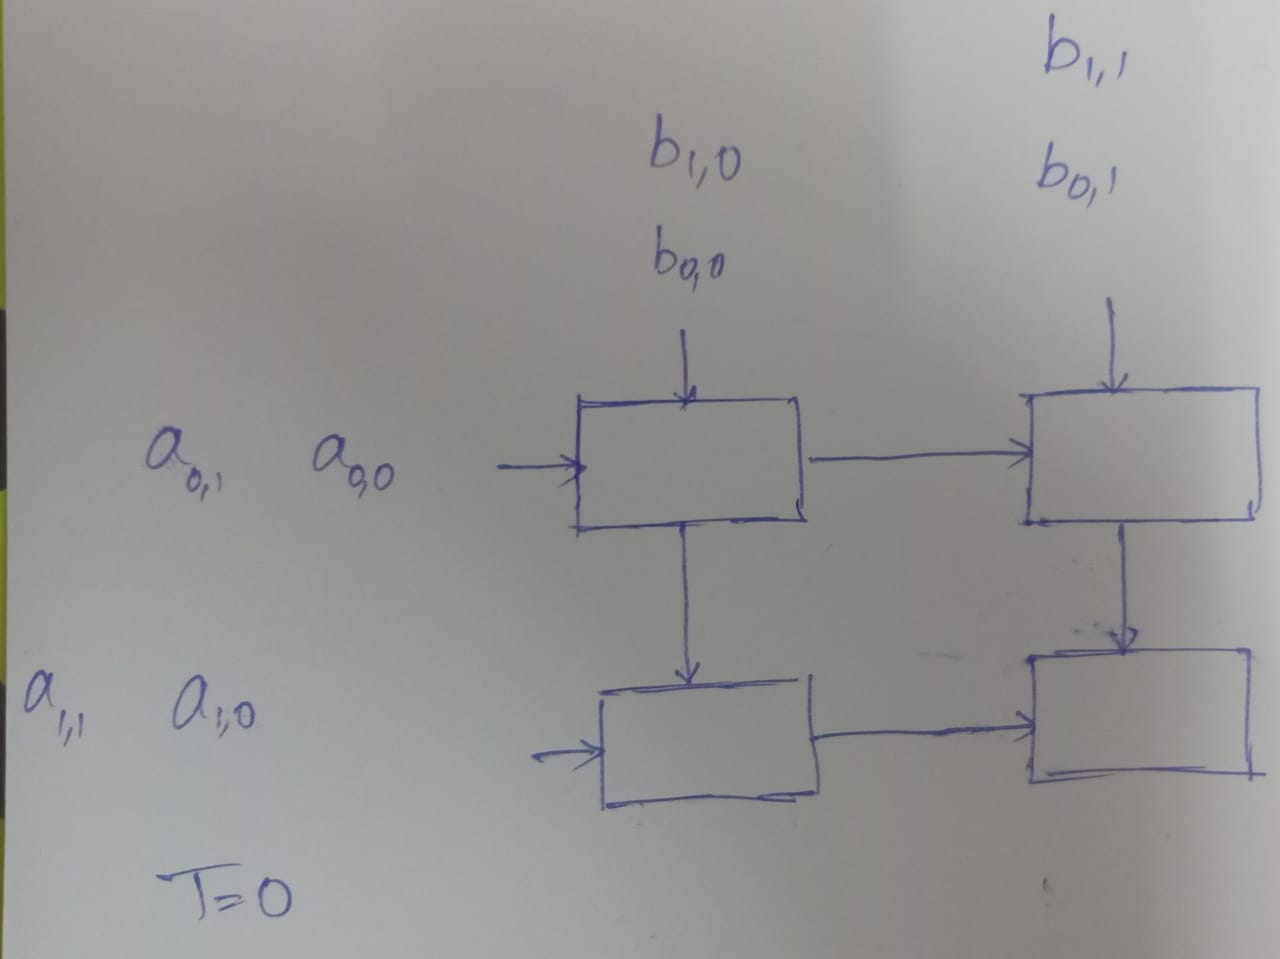 b1,1
b1,0
b0,1
b0,0
a0,1 a0,0
a1,1 a1,0
T=0